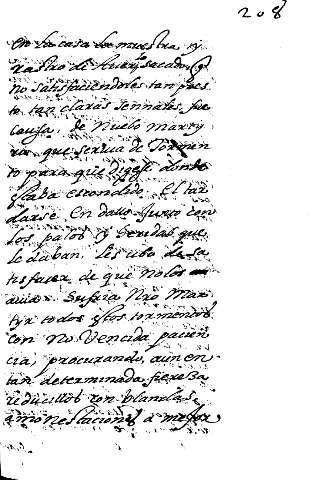 208
en la casa la muestra, y
rastro de haver sacado, y
no satisfaciendoles tan pres
to tan claras sennales, fue
causa, de Nuebo martÿ
rio que servia de Tormen
to para que Digesse donde
estaba escondido. El tar
darse En dallo Junto con
los palos y heridas que
le daban. les ubo de sa
tisfacer de que no los
avia. Sufria Nro Mar
tyr todos estos tormentos
con No Vencida pacien
cia, procurando, aun en
tan determinada fiereza
reducillos con blandas
amonestaciones a mejor